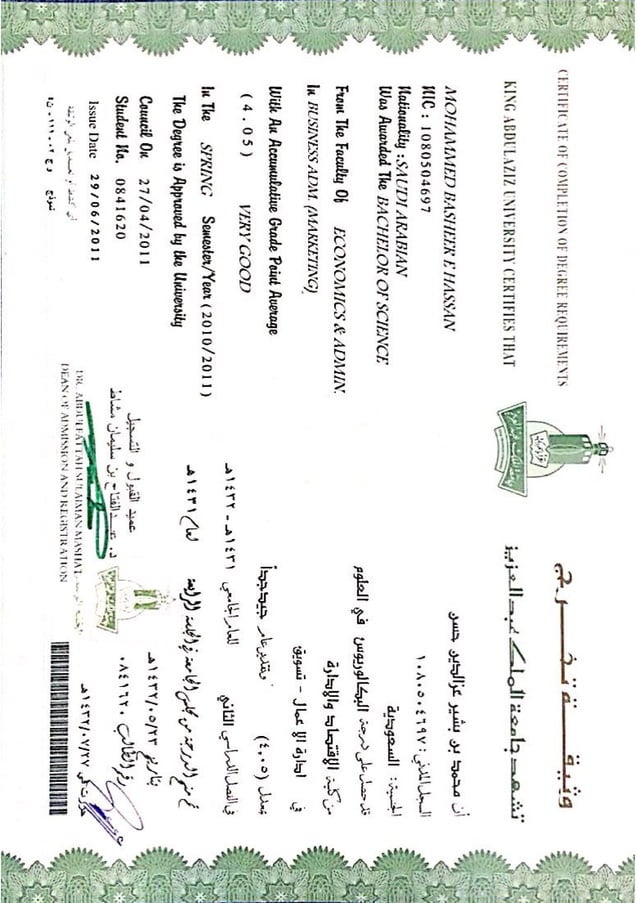 CERTIFICATE OF COMPLETION OF DEGREE REQUIREMENTS
KING ABDULAZIZ UNIVERSITY CERTIFIES THAT
MOHAMMED BASHEER E HASSAN
NIC : 1080504697
Nationality : SAUDI ARABIAN
Was Awarded The BACHELOR OF SCIENCE
From The Faculty Of ECONOMICS & ADMIN.
In BUSINESS ADM. (MARKETING)
With An Accumulative Grade Point Average
( 4.05 ) VERY GOOD
In The SPRING Semester/Year ( 2010/2011 )
The Degree is Approved by the University
Council On 27/04/2011
Student No. 0841620
Issue Date 29/06/2011
وثيقة تخرج
تشهد جامعة الملك عبدالعزيز
أن محمد بن بشير عزالدين حسن
السجل المدني: ١٠٨٠٥٠٤٦٩٧
الجنسية: السعودية
قد حصل على درجة البكالوريوس في العلوم
من كلية الاقتصاد والادارة
في ادارة الاعمال - تسويق
بمعدل (٤,٠٥) وبتقدير عام جيد جداً
في الفصل الدراسي الثاني للعام الجامعي ١٤٣١ - ١٤٣٢هـ
تم منح الدرجة من مجلس الجامعة في الجلسة الرابعة لعام ١٤٣١هـ
بتاريخ ١٤٣٢/٠٥/٢٣هـ
رقم الطالب ٠٨٤١٦٢٠
حررت في ١٤٣٢/٠٧/٢٧هـ
عميد القبول و التسجيل
د. عبدالفتاح بن سليمان مشاط
DR. ABDULFATTAH SULAIMAN MASHAT
DEAN OF ADMISSION AND REGISTRATION